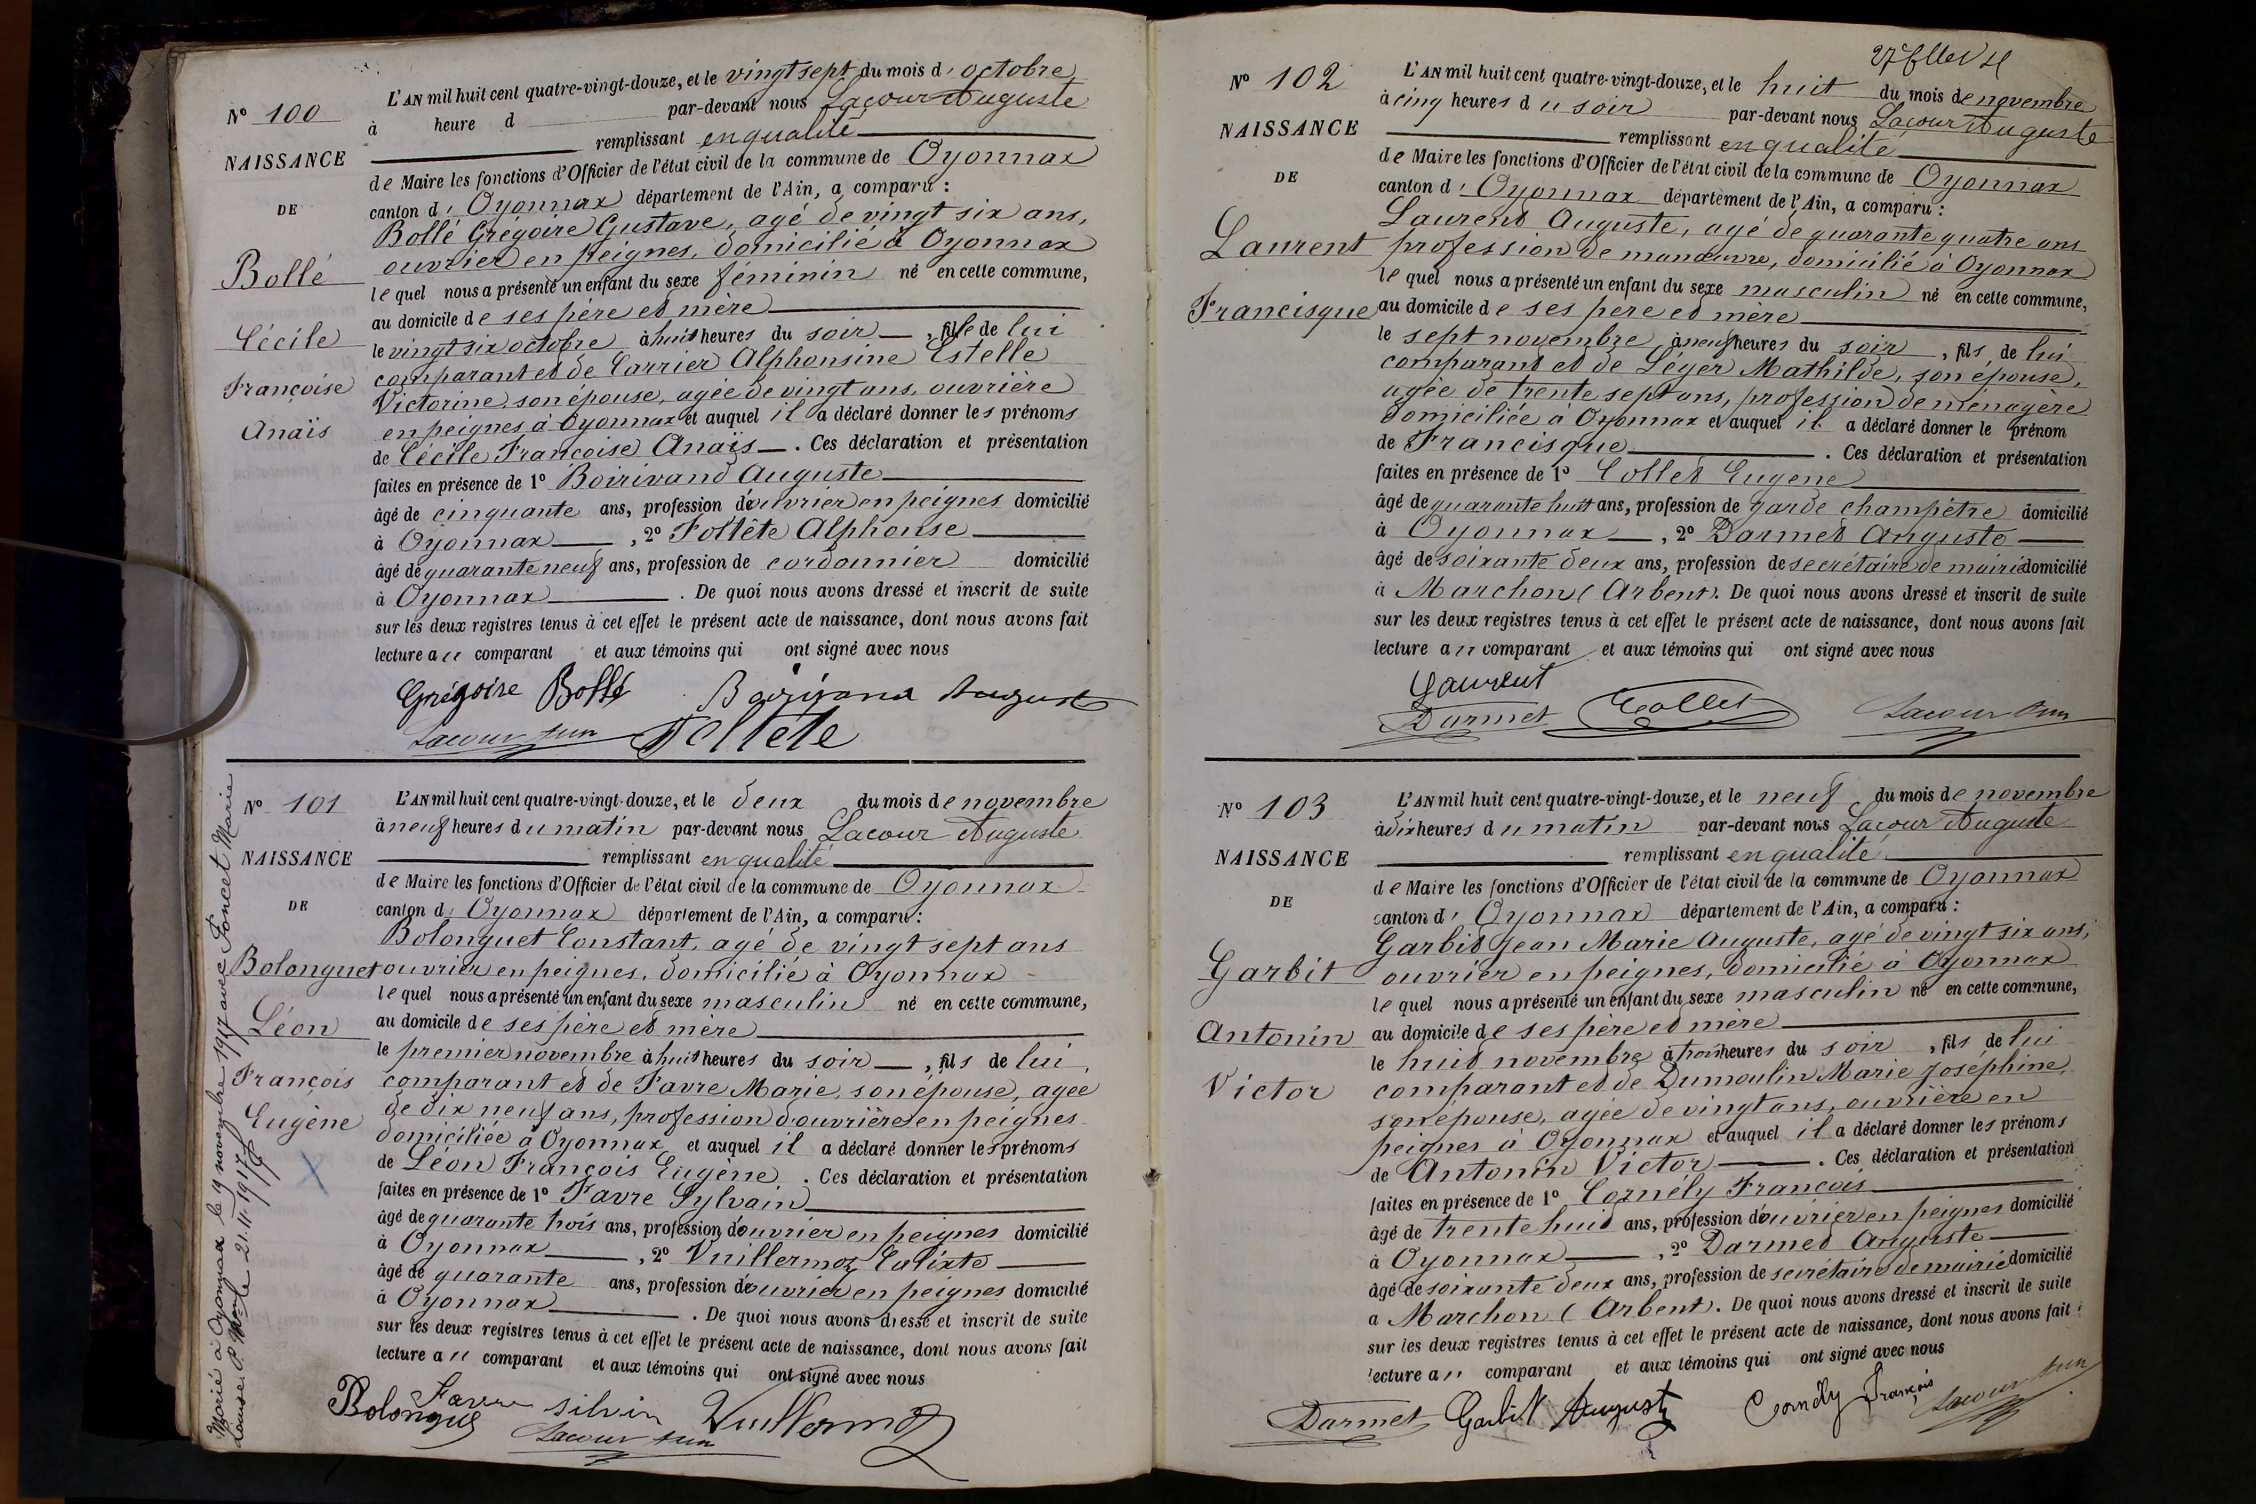 N° 100
NAISSANCE
DE
Bollé
Cécile
Françoise
Anaïs
L'AN mil huit cent quatre-vingt-douze, et le vingt sept du mois d'octobre
à heure d par-devant nous Lacour Auguste
remplissant en qualité
de Maire les fonctions d'Officier de l'état civil de la commune de Oyonnax
canton d'Oyonnax département de l'Ain, a comparu :
Bollé Grégoire Gustave, agé de vingt six ans,
ouvrier en peignes, domicilié à Oyonnax
lequel nous a présenté un enfant du sexe féminin né en cette commune,
au domicile de ses père et mère
le vingt six octobre à huit heures du soir, fille de lui
comparant et de Carrier Alphonsine Estelle
Victorine, son épouse, agée de vingt ans, ouvrière
en peignes à Oyonnax et auquel il a déclaré donner les prénoms
de Cécile Françoise Anaïs. Ces déclaration et présentation
faites en présence de 1° Boirivand Auguste
âgé de cinquante ans, profession d'ouvrier en peignes domicilié
à Oyonnax, 2° Foltête Alphonse
âgé de quarante neuf ans, profession de cordonnier domicilié
à Oyonnax. De quoi nous avons dressé et inscrit de suite
sur les deux registres tenus à cet effet le présent acte de naissance, dont nous avons fait
lecture au comparant et aux témoins qui ont signé avec nous
Grégoire Bollé Boirivand August
Lacour Foltête
N° 101
NAISSANCE
DE
Bolonguet
Léon
François
Eugène
Marié à Oyonnax le 9 novembre 1917 avec Foncet Marie
Louise. 21.11.1917
L'AN mil huit cent quatre-vingt-douze, et le deux du mois de novembre
à neuf heures du matin par-devant nous Lacour Auguste
remplissant en qualité
de Maire les fonctions d'Officier de l'état civil de la commune de Oyonnax
canton d'Oyonnax département de l'Ain, a comparu :
Bolonguet Constant, agé de vingt sept ans
ouvrier en peignes, domicilié à Oyonnax
lequel nous a présenté un enfant du sexe masculin né en cette commune,
au domicile de ses père et mère
le premier novembre à huit heures du soir, fils de lui
comparant et de Favre Marie, son épouse, agée
de dix neuf ans, profession d'ouvrière en peignes
domiciliée à Oyonnax et auquel il a déclaré donner les prénoms
de Léon François Eugène. Ces déclaration et présentation
faites en présence de 1° Favre Sylvain
âgé de quarante trois ans, profession d'ouvrier en peignes domicilié
à Oyonnax, 2° Vuillermoz Calixte
âgé de quarante ans, profession d'ouvrier en peignes domicilié
à Oyonnax. De quoi nous avons dressé et inscrit de suite
sur les deux registres tenus à cet effet le présent acte de naissance, dont nous avons fait
lecture au comparant et aux témoins qui ont signé avec nous
Bolonguet Favre silvin Vuillermoz
Lacour
N° 102
NAISSANCE
DE
Laurent
Francisque
L'AN mil huit cent quatre-vingt-douze, et le huit du mois de novembre
à cinq heures du soir par-devant nous Lacour Auguste
remplissant en qualité
de Maire les fonctions d'Officier de l'état civil de la commune de Oyonnax
canton d'Oyonnax département de l'Ain, a comparu :
Laurent Auguste, agé de quarante quatre ans
profession de manœuvre, domicilié à Oyonnax
lequel nous a présenté un enfant du sexe masculin né en cette commune,
au domicile de ses père et mère
le sept novembre à neuf heures du soir, fils de lui
comparant et de Léger Mathilde, son épouse,
agée de trente sept ans, profession de ménagère
domiciliée à Oyonnax et auquel il a déclaré donner le prénom
de Francisque. Ces déclaration et présentation
faites en présence de 1° Collet Eugène
âgé de quarante huit ans, profession de garde champêtre domicilié
à Oyonnax, 2° Darmet Auguste
âgé de soixante deux ans, profession de secrétaire de mairie domicilié
à Marchon (Arbent). De quoi nous avons dressé et inscrit de suite
sur les deux registres tenus à cet effet le présent acte de naissance, dont nous avons fait
lecture au comparant et aux témoins qui ont signé avec nous
Laurent
Darmet Collet Lacour
N° 103
NAISSANCE
DE
Garbit
Antonin
Victor
L'AN mil huit cent quatre-vingt-douze, et le neuf du mois de novembre
à dix heures du matin par-devant nous Lacour Auguste
remplissant en qualité
de Maire les fonctions d'Officier de l'état civil de la commune de Oyonnax
canton d'Oyonnax département de l'Ain, a comparu :
Garbit Jean Marie Auguste, agé de vingt six ans,
ouvrier en peignes, domicilié à Oyonnax
lequel nous a présenté un enfant du sexe masculin né en cette commune,
au domicile de ses père et mère
le huit novembre à trois heures du soir, fils de lui
comparant et de Dumoulin Marie Joséphine,
son épouse, agée de vingt ans, ouvrière en
peignes à Oyonnax et auquel il a déclaré donner les prénoms
de Antonin Victor. Ces déclaration et présentation
faites en présence de 1° Cornély François
âgé de trente huit ans, profession d'ouvrier en peignes domicilié
à Oyonnax, 2° Darmet Auguste
âgé de soixante deux ans, profession de secrétaire de mairie domicilié
a Marchon (Arbent). De quoi nous avons dressé et inscrit de suite
sur les deux registres tenus à cet effet le présent acte de naissance, dont nous avons fait
lecture au comparant et aux témoins qui ont signé avec nous
Darmet Garbit August Cornély François Lacour